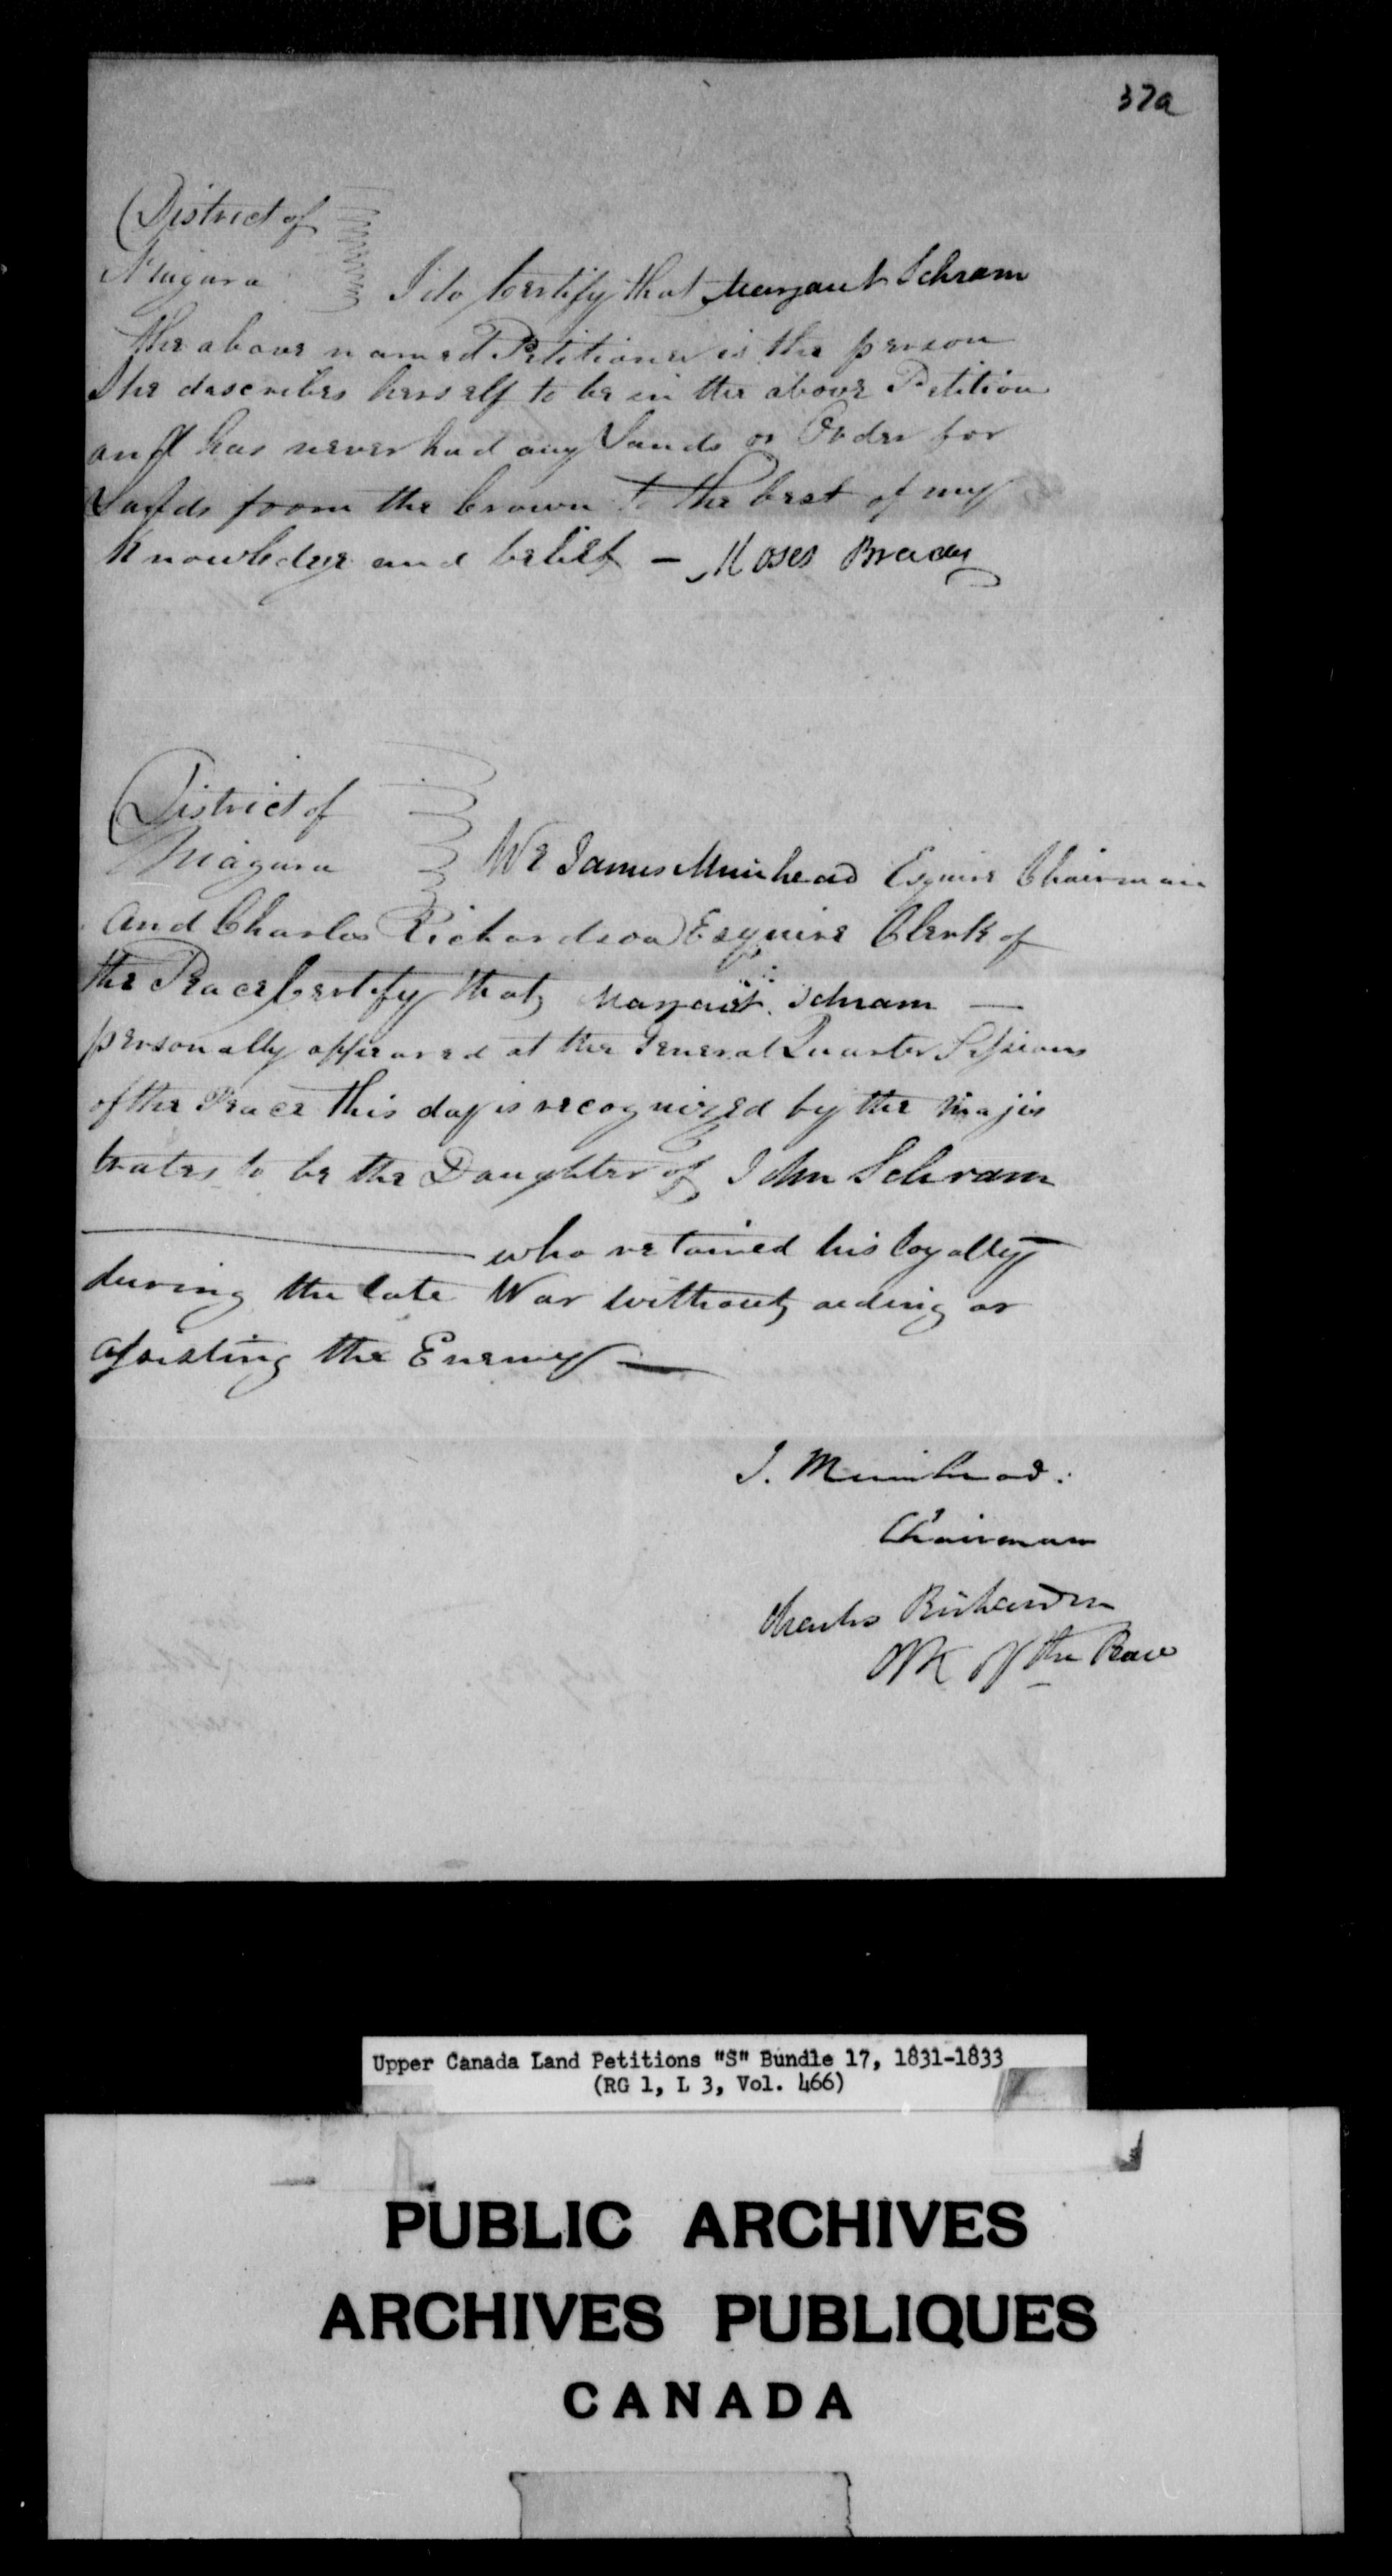 37a
District of
Niagara
I do Certify that Margaret Schram
the above named Petitioner is the person
She describes herself to be in the above Petition
and has never had any Lands or Order for
Lands from the Crown to the best of my
Knowledge and belief — Moses Brady
District of
Niagara
We James Muirhead Esquire Chairman
and Charles Richardson Esquire Clerk of
the Peace Certify that Margaret Schram —
personally appeared at the General Quarter Sessions
of the Peace this day is recognized by the Majis
trates to be the Daughter of John Schram
— who retained his loyalty
during the late War without aiding or
assisting the Enemy —
J. Muirhead.
Chairman
Charles Richardson
Clk of the Peace
Upper Canada Land Petitions "S" Bundle 17, 1831-1833
(RG 1, L 3, Vol. 466)
PUBLIC ARCHIVES
ARCHIVES PUBLIQUES
CANADA